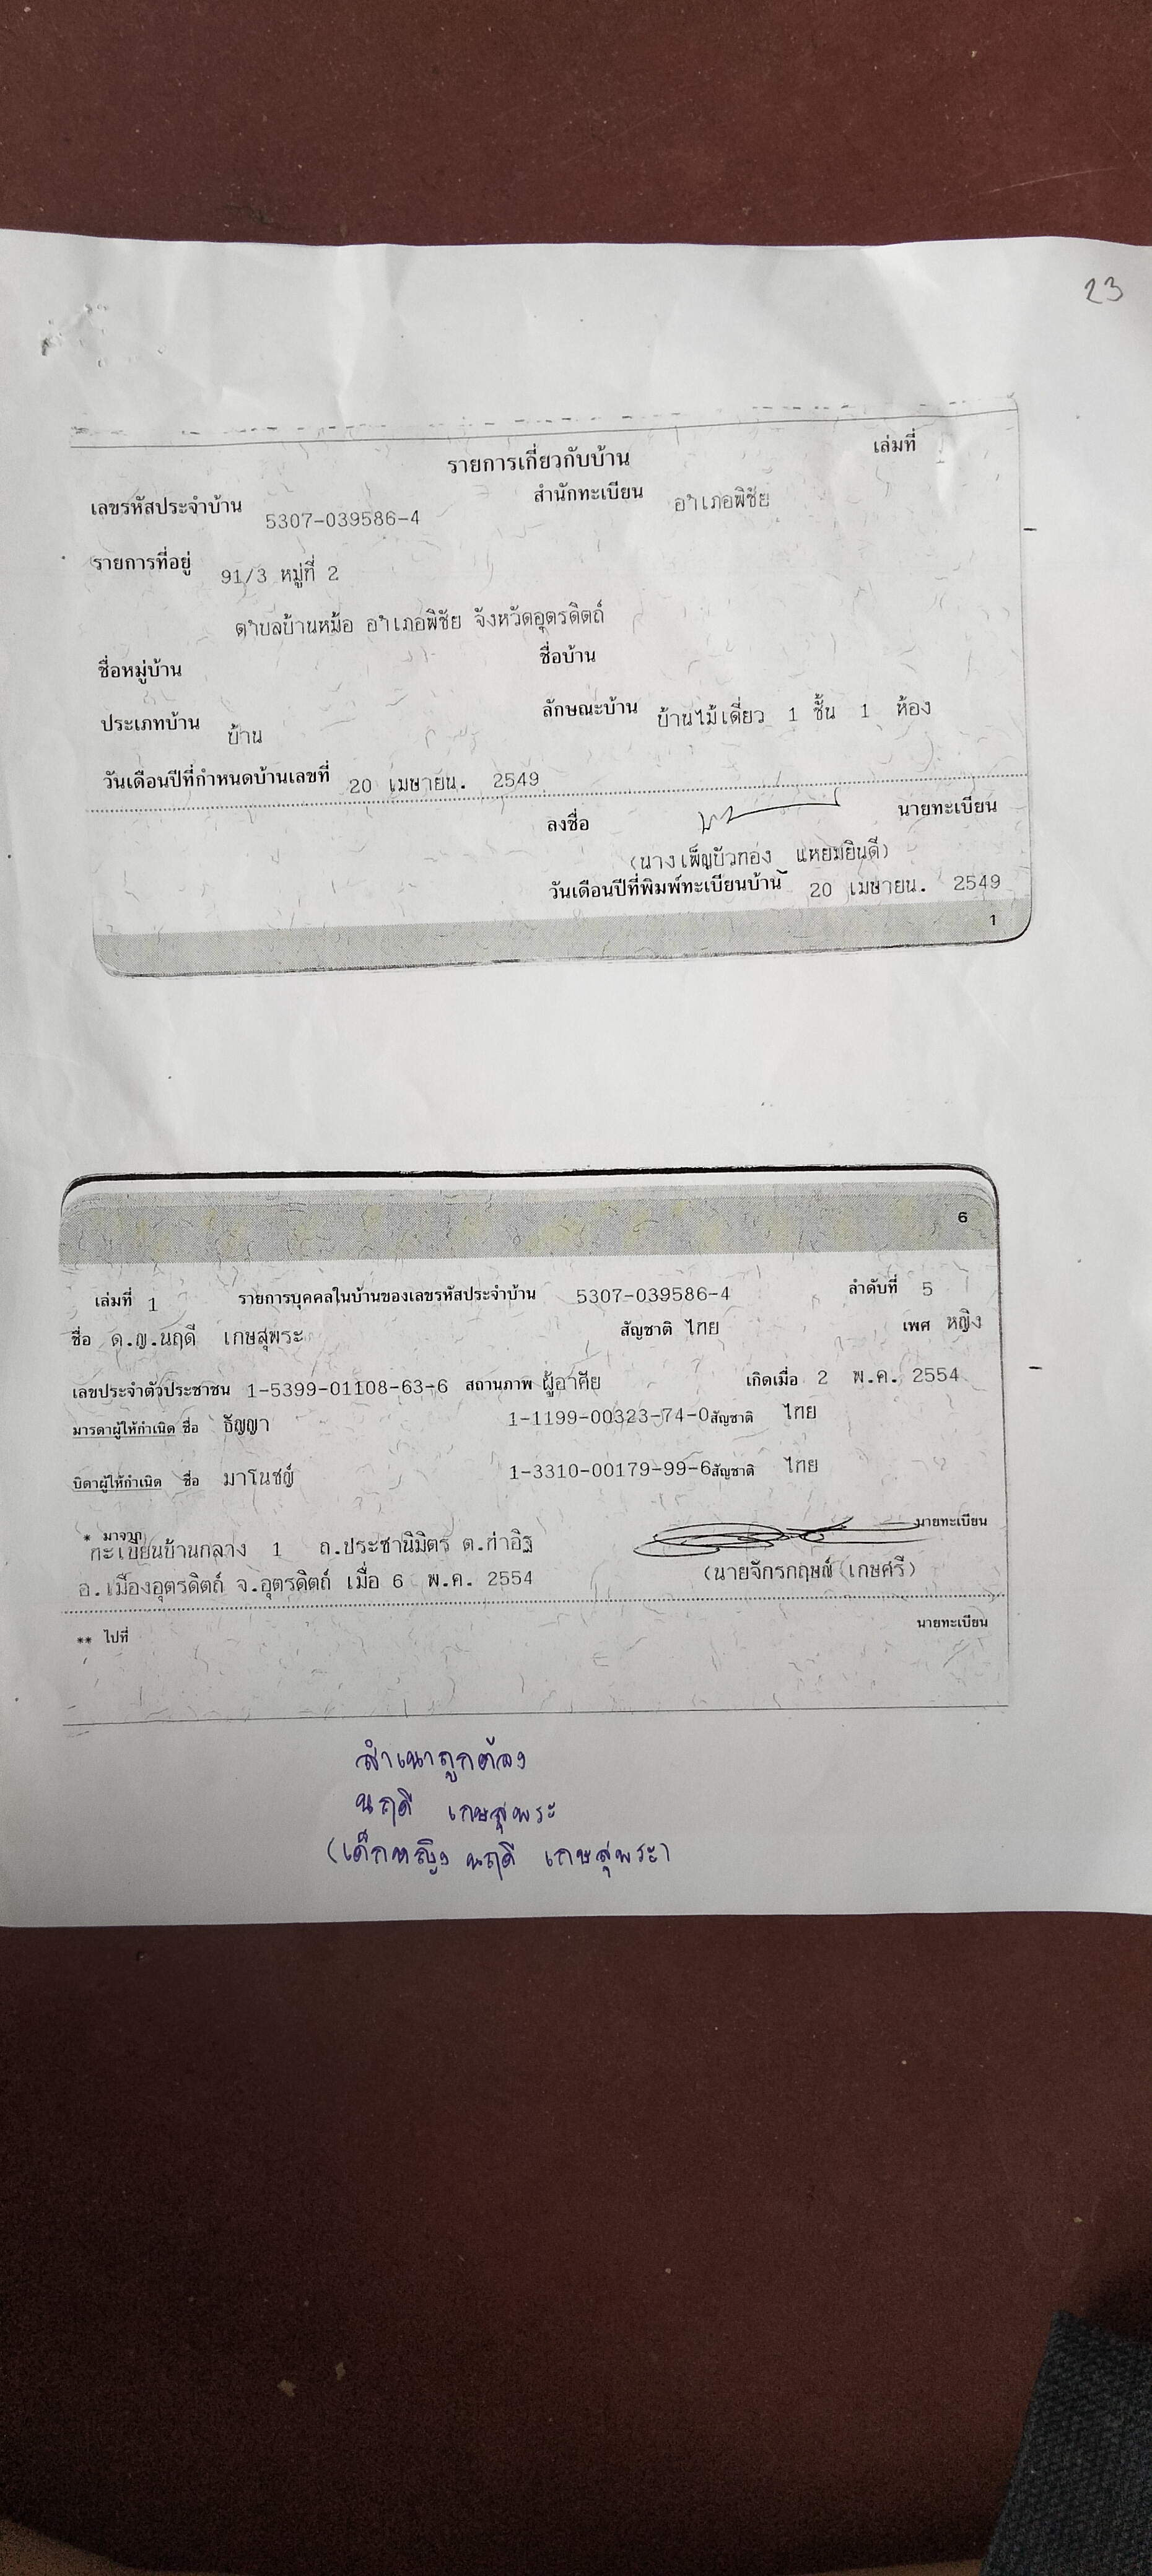 23
รายการเกี่ยวกับบ้าน เล่มที่
เลขรหัสประจำบ้าน 5307-039586-4 สำนักทะเบียน อำเภอพิชัย
รายการที่อยู่ 91/3 หมู่ที่ 2
ตำบลบ้านหม้อ อำเภอพิชัย จังหวัดอุตรดิตถ์
ชื่อหมู่บ้าน ชื่อบ้าน
ประเภทบ้าน บ้าน ลักษณะบ้าน บ้านไม้เดี่ยว 1 ชั้น 1 ห้อง
วันเดือนปีที่กำหนดบ้านเลขที่ 20 เมษายน. 2549
ลงชื่อ นายทะเบียน
(นางเพ็ญบัวทอง แหยมยินดี)
วันเดือนปีที่พิมพ์ทะเบียนบ้าน 20 เมษายน. 2549
1
6
เล่มที่ 1 รายการบุคคลในบ้านของเลขรหัสประจำบ้าน 5307-039586-4 ลำดับที่ 5
ชื่อ ด.ญ.นฤดี เกษสุพระ สัญชาติ ไทย เพศ หญิง
เลขประจำตัวประชาชน 1-5399-01108-63-6 สถานภาพ ผู้อาศัย เกิดเมื่อ 2 พ.ค. 2554
มารดาผู้ให้กำเนิด ชื่อ ธัญญา 1-1199-00323-74-0 สัญชาติ ไทย
บิดาผู้ให้กำเนิด ชื่อ มาโนชญ์ 1-3310-00179-99-6 สัญชาติ ไทย
* มาจาก นายทะเบียน
ทะเบียนบ้านกลาง 1 ถ.ประชานิมิตร ต.ท่าอิฐ
อ.เมืองอุตรดิตถ์ จ.อุตรดิตถ์ เมื่อ 6 พ.ค. 2554 (นายจักรกฤษณ์ เกษศรี)
** ไปที่ นายทะเบียน
สำเนาถูกต้อง
นฤดี เกษสุพระ
(เด็กหญิง นฤดี เกษสุพระ)